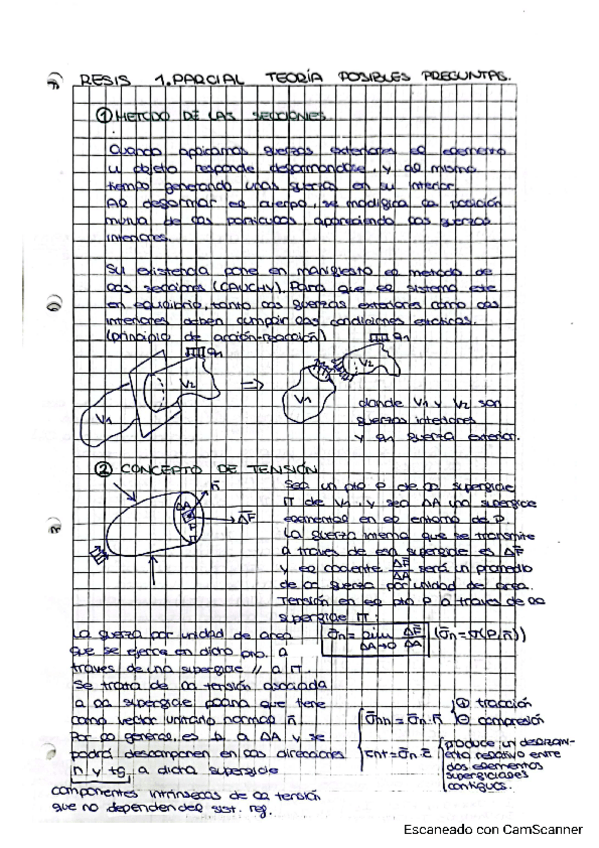 RESIS 1.PARCIAL TEORÍA POSIBLES PREGUNTAS.
① METODO DE LAS SECCIONES
Cuando aplicamos fuerzas exteriores el elemento
u objeto responde deformandose, y al mismo
tiempo generando unas fuerzas en su interior.
Al deformar el cuerpo, se modifica la posición
mutua de las partículas, apareciendo las fuerzas
interiores.
Su existencia pone en manifiesto el metodo de
las secciones (CAUCHY). Para que el sistema esté
en equilibrio, tanto las fuerzas exteriores como las
interiores deben cumplir las condiciones
(principio de acción-reacción)
q1
q1
V2
V2
V1
V1
donde V1 y V2 son
fuerzas interiores
y q1 fuerza exterior.
② CONCEPTO DE TENSIÓN
Sea un pto P de la superficie
π de V1, y sea ΔA una superficie
elemental en el entorno de P.
La fuerza interna que se transmite
a traves de esa superficie es ΔF̄
y el cociente ΔF̄/ΔA será un promedio
de la fuerza por unidad de area.
Tensión en el pto P a traves de la
superficie π:
n̄
ΔA
ΔF̄
σ̄n = lim ΔA→0 ΔF̄/ΔA (σ̄n = σ(P, n̄))
La fuerza por unidad de area
que se ejerce en dicho pto. a
traves de una superficie // a π.
Se trata de la tensión asociada
a la superficie plana que tiene
como vector unitario normal n̄.
Por lo general, es a ΔA y se
podrá descomponer en las direcciones
n y tg. a dicha superficie
componentes intrinsecas de la tensión
que no dependen del sist. reg.
σnn = σ̄n · n̄
⊕ tracción
⊖ compresión
produce un
relativo entre
dos elementos
superficiales
contiguos.
Escaneado con CamScanner